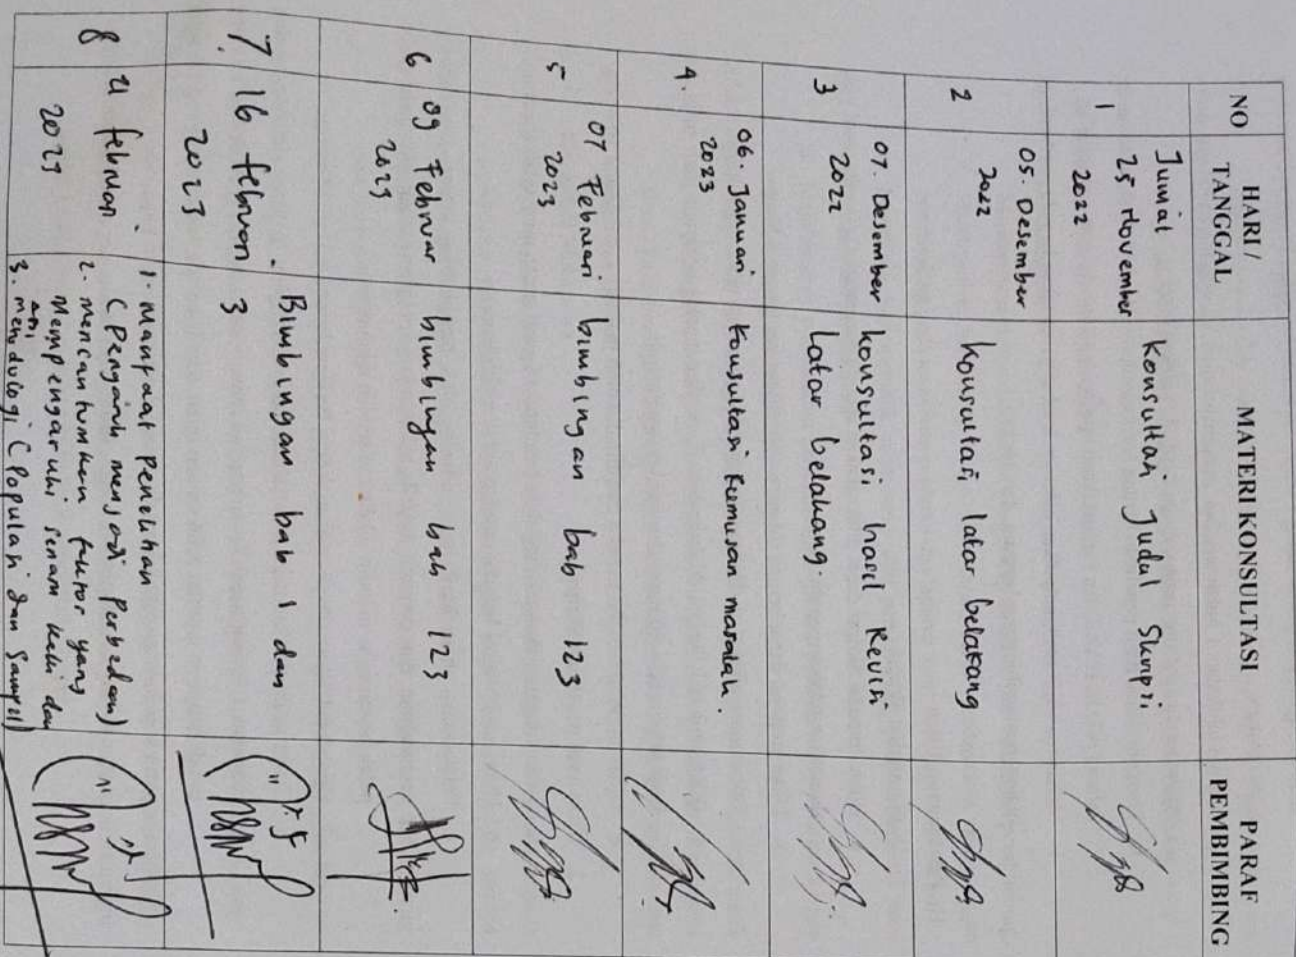 NO
HARI /
TANGGAL
MATERI KONSULTASI
PARAF
PEMBIMBING
1
Jumat
25 November
2022
Konsultasi Judul Skripsi
2
05. Desember
2022
Konsultasi latar belakang
3
07. Desember
2022
konsultasi hasil Revisi
Latar belakang.
4.
06. Januari
2023
Konsultasi Rumusan masalah.
5
07 Februari
2023
bimbingan bab 123
6
09 Februar
2023
bimbingan bab 123
7
16 februari
2023
Bimbingan bab 1 dan
3
8
21 februari
2023
1. Manfaat Penelitian
(Pengaruh menjadi Perbedaan)
2. mencantumkan faktor yang
Mempengaruhi senam kaki dan
3. metodologi (Populasi dan Sampel)